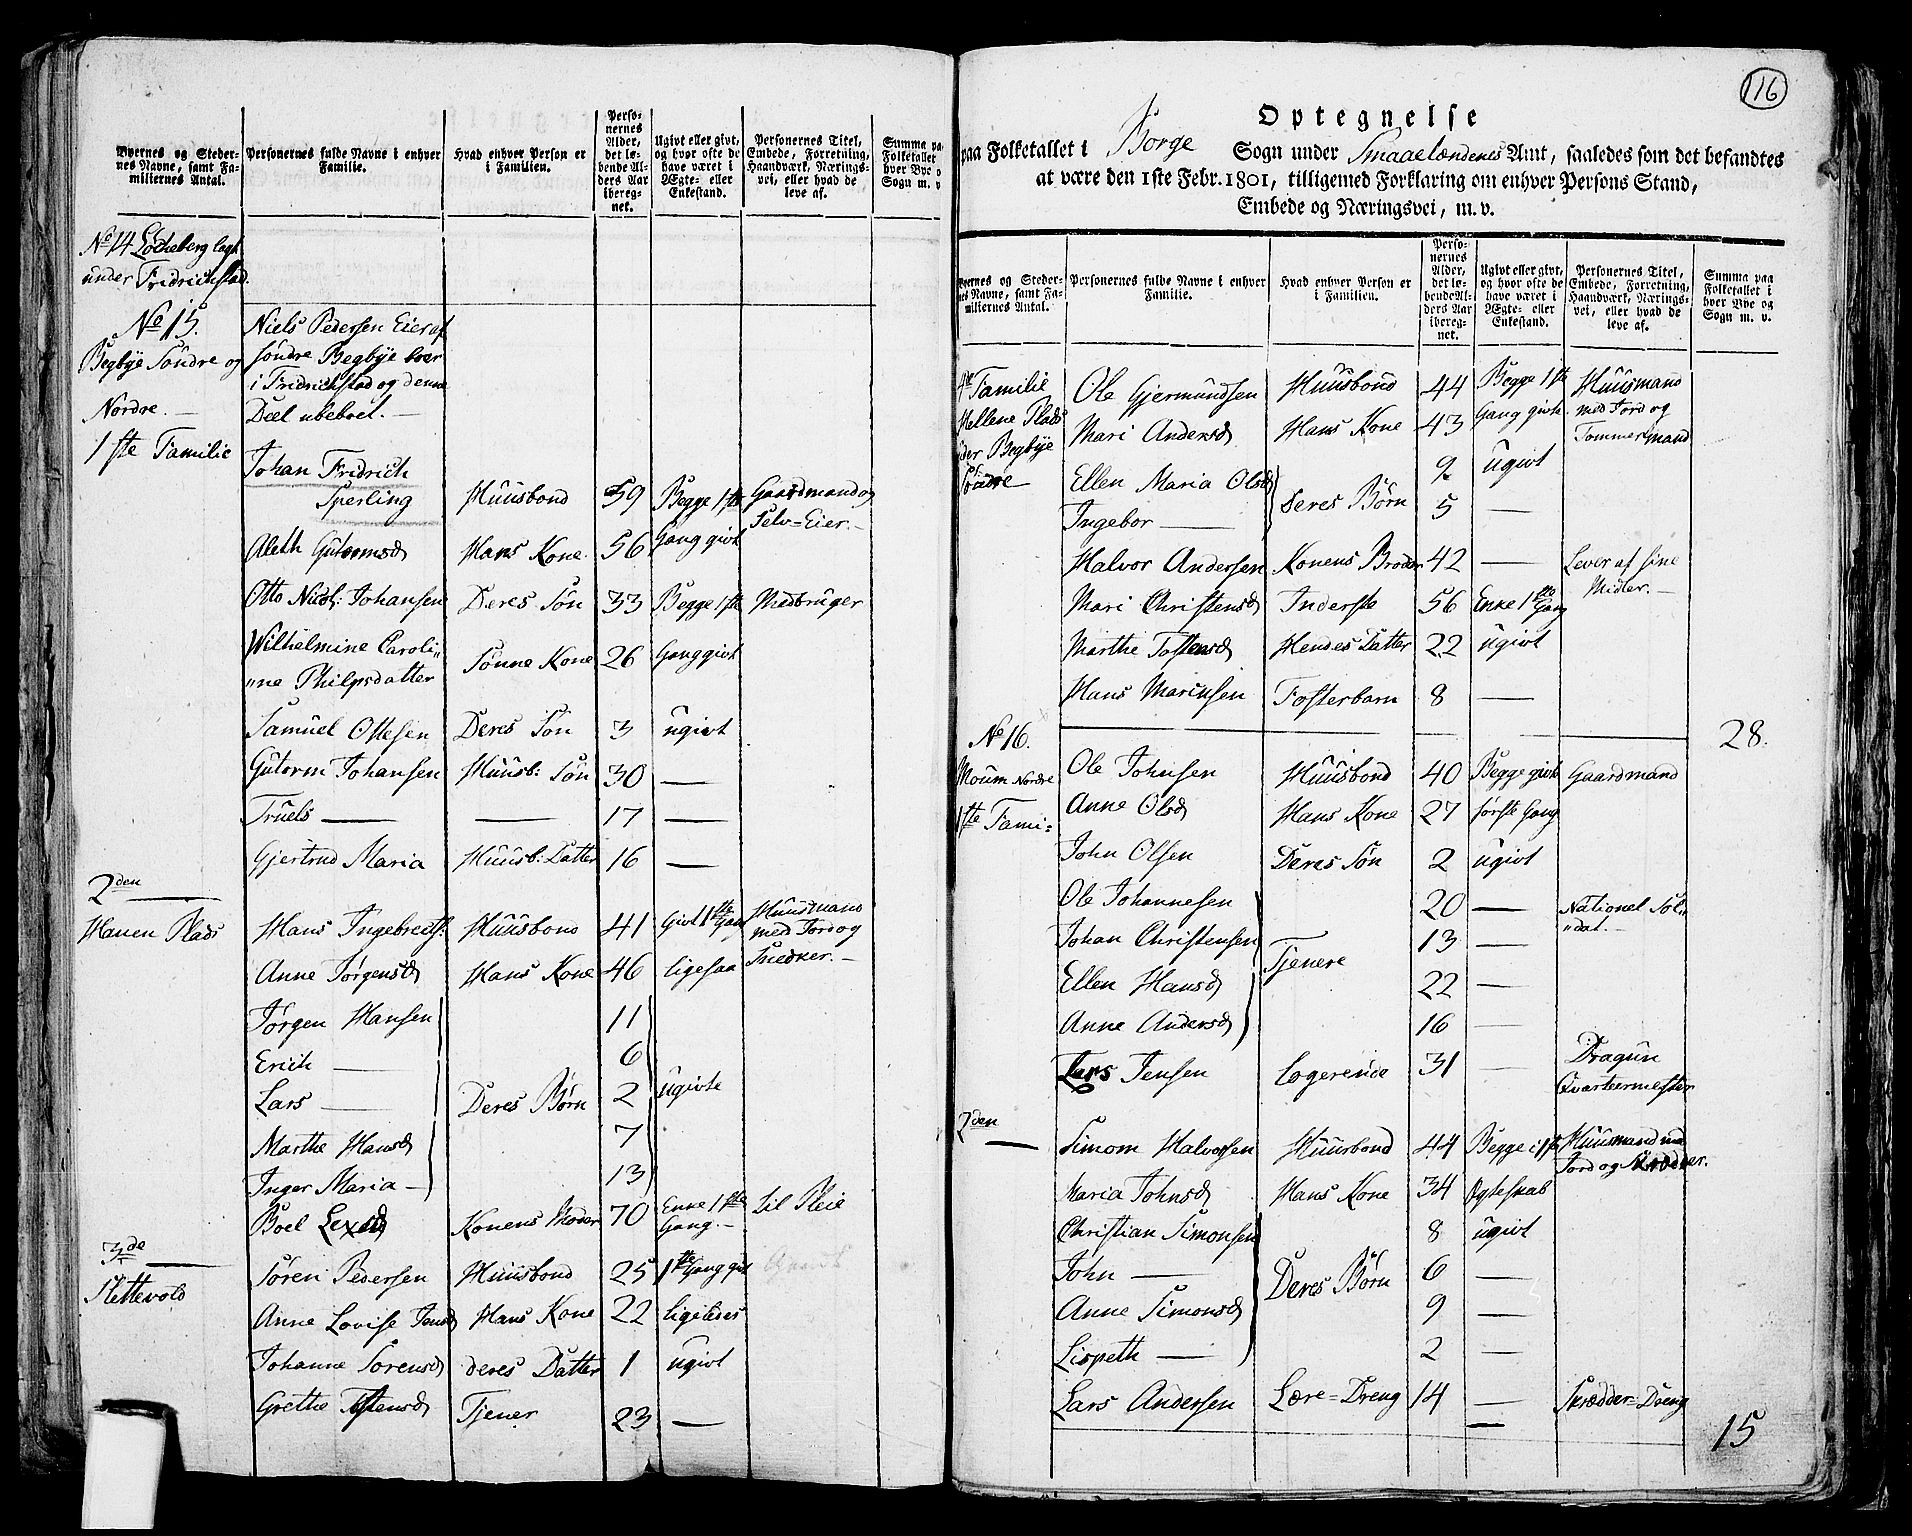 Byernes og Steder-
nes Navne, samt Fa-
miliernes Antal.
Personernes fulde Navne i enhver
Familie.
Hvad enhver Person er
i Familien.
Perso-
nernes
Alder,
det lø-
bende Al-
ders Aar
ibereg-
net.
Ugivt eller givt,
og hvor ofte de
have været i
Ægte- eller
Enkestand.
Personernes Titel,
Embede, Forretning,
Haandværk, Nærings-
vei, eller hvad de
leve af.
Summa pa
Folketallet
hver Bye o
Sogn m. v
No 14 Locheberg lagt
under Fridrichstad.
No 15. Niels Pedersen Eier af
Begbye Söndre og söndre Begbye boer
i Fridrichstad og denne
Nordre. Deel ubeboet.
1ste Familie
Johan Fridrich
Sperling Huusbond 59 Begge 1ste Gaardmand og
Selv-Eier.
Aleth Gutormsd Hans Kone 56 Gang givt
Otto Nicol: Johansen Deres Søn 33 Begge 1ste Medbruger
Wilhelmine Caroli"
"ne Philpsdatter Sönne Kone 26 Gang givt
Samuel Ottesen Deres Søn 3 ugivt
Gutorm Johansen Huusb: Søn 30 —
Truels — — 17 —
Gjertrud Maria Huusb: Datter 16 —
2den
Hauen Plads Hans Ingebretts: Huusbond 41 Givt 1ste Gang Huusmand
med Jord og
Snedker.
Anne Jørgensd Hans Kone 46 ligesaa
Jørgen Hansen 11
Erich — 6
Lars — Deres Børn 2 ugivte
Marthe Hansd 7
Inger Maria — 13
Boel Konens Moder 70 Enke 1ste
Gang. til Pleie
3de
Slettevold Søren Pedersen Huusbond 25 1ste Gang givt
Anne Lovise Jensd Hans Kone 22 ligeledes
Johanne Sorensd deres Datter 1 ugivt
Grethe Tostensd Tjener 23 —
116
Optegnelse
paa Folketallet i Borge Sogn under Smaaelændenes Amt, saaledes som det befandtes
at være den 1ste Febr. 1801, tilligemed Forklaring om enhver Persons Stand,
Embede og Næringsvei, m. v.
Byernes og Steder-
nes Navne, samt Fa-
miliernes Antal.
Personernes fulde Navne i enhver
Familie.
Hvad enhver Person er
i Familien.
Perso-
nernes
Alder,
det lø-
bende Al-
ders Aar
ibereg-
net.
Ugivt eller givt,
og hvor ofte de
have været i
Ægte- eller
Enkestand.
Personernes Titel,
Embede, Forretning,
Haandværk, Nærings-
vei, eller hvad de
leve af.
Summa paa
Folketallet i
hver Bye og
Sogn m. v.
4de Familie Ole Gjermundsen Huusbond 44 Begge 1ste Huusmand
Hellene Plads Mari Andersd Hans Kone 43 Gang givte med Jord og
Tommermand
under Begbye Ellen Maria Olsd Deres Børn 9 ugivt
Söndre Ingebor — 5 —
Halvor Andersen Konens Broder 42 — Lever af sine
Midler.
Mari Christensd Inderste 56 Enke 1ste Gang
Marthe Tostensd Hendes Datter 22 ugivt
Hans Mariusen Fosterbarn 8 —
28.
No 16.
Moum Nordre Ole Johnsen Huusbond 40 Begge givte Gaardmand
1ste Fami= Anne Olsd Hans Kone 27 første Gang
John Olsen Deres Søn 2 ugivt
Ole Johannesen 20 — National Sol"
"dat.
Johan Christensen Tjenere 13 —
Ellen Hansd 22 —
Anne Andersd 16 —
Lars Jensen Logerende 31 — Dragun
Qvarteermester
2den — Simom Halvorsen Huusbond 44 Begge i 1ste Huusmand med
Jord og Skredder.
Maria Johnsd Hans Kone 34 Ægteskab
Christian Simonsen 8 ugivt
John — Deres Børn 6 —
Anne Simonsd 9 —
Lispeth — 2 —
Lars Andersen Lære=Dreng 14 — Skrædder=Dreng
15